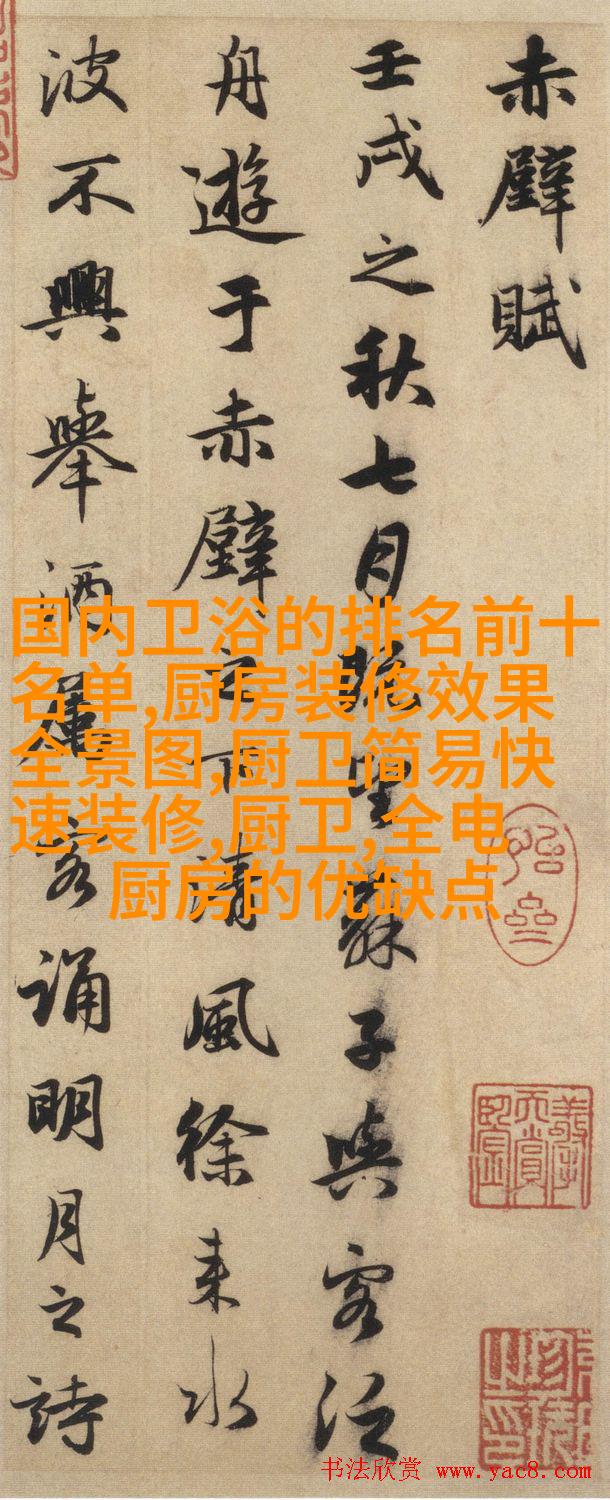 赤壁賦
壬戌之秋七月既望蘇子與客泛
舟遊于赤壁之下清風徐来水
波不興舉酒属客誦明月之詩
国内卫浴的排名前十
名单,厨房装修效果
全景图,厨卫简易快
速装修,厨卫,全电
厨房的优缺点
书法欣赏 www.yac8.com